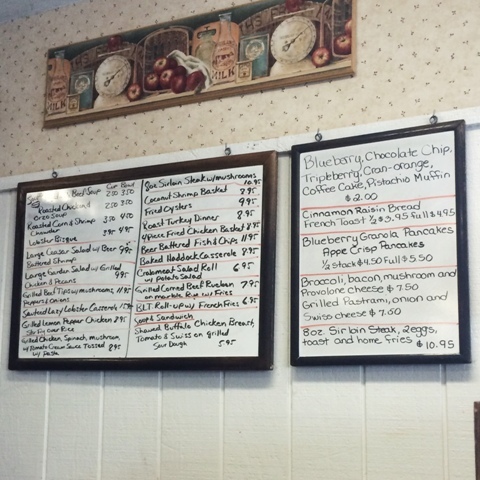 MILK
Cup Bowl
Beef Soup 2.50 3.50
Roasted Chicken & 2.50 3.50
Orzo Soup
Roasted Corn & Shrimp 3.50 4.50
Chowder
Lobster Bisque 3.95 4.95
Large Caesar Salad w/ Beer
Battered Shrimp
Large Garden Salad w/ Grilled
Chicken & Pecans
Grilled Beef Tips w/ mushrooms,
Peppers & Onions
Sauteed Lazy Lobster Casserole
Grilled Lemon Pepper Chicken
Stir Fry over Rice
Grilled Chicken, Spinach, mushroom,
w/ Tomato Cream Sauce Tossed
w/ Pasta 8.95
8oz Sirloin Steak w/ mushrooms
10.95
Coconut Shrimp Basket
Fried Oysters 9.95
Roast Turkey Dinner 8.95
4 piece Fried Chicken Basket 8.95
Beer Battered Fish & Chips 11.95
Baked Haddock Casserole 8.95
Crabmeat Salad Roll 6.95
w/ Potato Salad
Grilled Corned Beef Rueben 7.95
on marble Rye w/ Fries
BLT Roll-up w/ French Fries 6.95
Soup & Sandwich
Shaved Buffalo Chicken Breast,
Tomato & Swiss on Grilled
Sour Dough 5.95
Blueberry, Chocolate Chip,
Tripleberry, Cran-orange,
Coffee Cake, Pistachio Muffin
$2.00
Cinnamon Raisin Bread
French Toast 1/2 $3.95 full $4.95
Blueberry Granola Pancakes
Appe Crisp Pancakes
1/2 stack 4.50 Full $5.50
Broccoli, bacon, mushroom and
Provolone cheese $7.50
Grilled Pastrami, onion and
Swiss cheese $7.50
8oz. Sirloin Steak, 2eggs,
toast and home fries $10.95